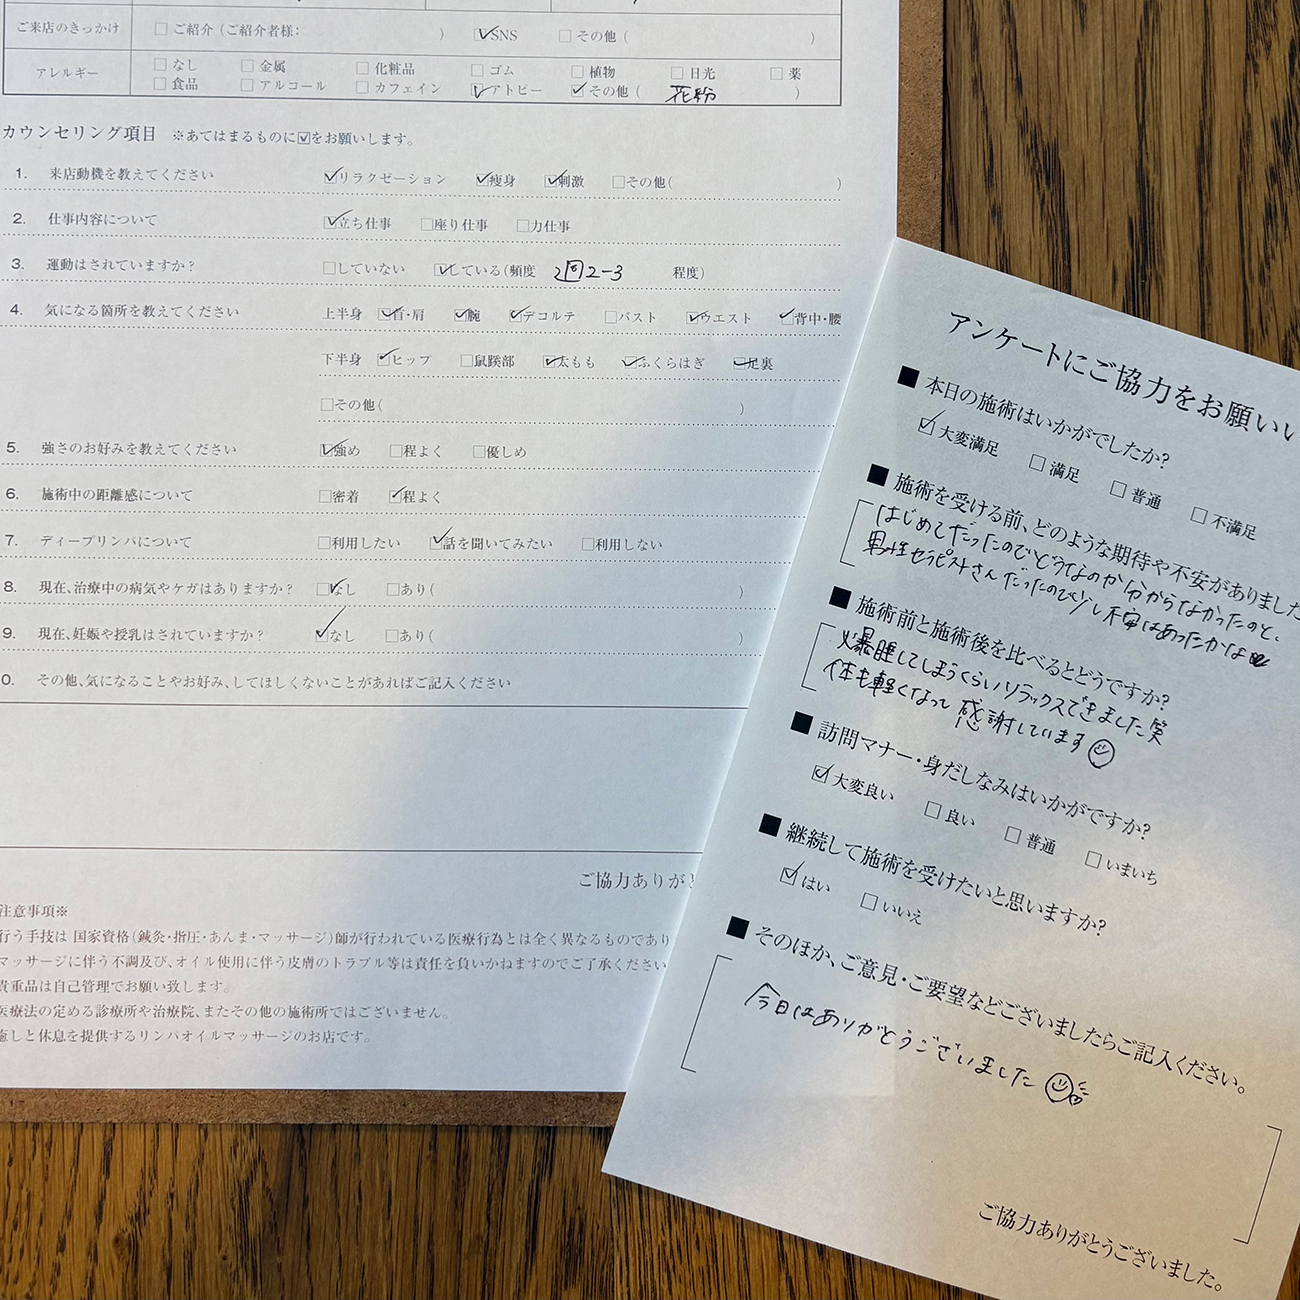 ご来店のきっかけ □ご紹介(ご紹介者様: ) ☑SNS □その他( )
アレルギー □なし □金属 □化粧品 □ゴム □植物 □日光 □薬
□食品 □アルコール □カフェイン ☑アトピー ☑その他( 花粉 )
カウンセリング項目 ※あてはまるものに☑をお願いします。
1. 来店動機を教えてください ☑リラクゼーション ☑痩身 ☑刺激 □その他( )
2. 仕事内容について ☑立ち仕事 □座り仕事 □力仕事
3. 運動はされていますか? □していない ☑している(頻度 2-3 程度)
4. 気になる箇所を教えてください 上半身 ☑首・肩 ☑腕 ☑デコルテ □バスト ☑ウエスト ☑背中・腰
下半身 ☑ヒップ □鼠蹊部 ☑太もも ☑ふくらはぎ ☑足裏
□その他( )
5. 強さのお好みを教えてください ☑強め □程よく □優しめ
6. 施術中の距離感について □密着 ☑程よく
7. ディープリンパについて □利用したい ☑話を聞いてみたい □利用しない
8. 現在、治療中の病気やケガはありますか? ☑なし □あり( )
9. 現在、妊娠や授乳はされていますか? ☑なし □あり( )
0. その他、気になることやお好み、してほしくないことがあればご記入ください
ご協力ありがと
注意事項※
行う手技は 国家資格(鍼灸・指圧・あんま・マッサージ)師が行われている医療行為とは全く異なるものであり
マッサージに伴う不調及び、オイル使用に伴う皮膚のトラブル等は責任を負いかねますのでご了承ください
貴重品は自己管理でお願い致します。
医療法の定める診療所や治療院、またその他の施術所ではございません。
癒しと休息を提供するリンパオイルマッサージのお店です。
アンケートにご協力をお願いい
■ 本日の施術はいかがでしたか?
☑大変満足 □満足 □普通 □不満足
■ 施術を受ける前、どのような期待や不安がありました
はじめてだったのでどうなのか分からなかったのと、
男性セラピストさんだったので少し不安はあったかな
■ 施術前と施術後を比べるとどうですか?
爆睡してしまうくらいリラックスできました笑
体も軽くなって感謝しています
■ 訪問マナー・身だしなみはいかがですか?
☑大変良い □良い □普通 □いまいち
■ 継続して施術を受けたいと思いますか?
☑はい □いいえ
■ そのほか、ご意見・ご要望などございましたらご記入ください。
今日はありがとうございました
ご協力ありがとうございました。